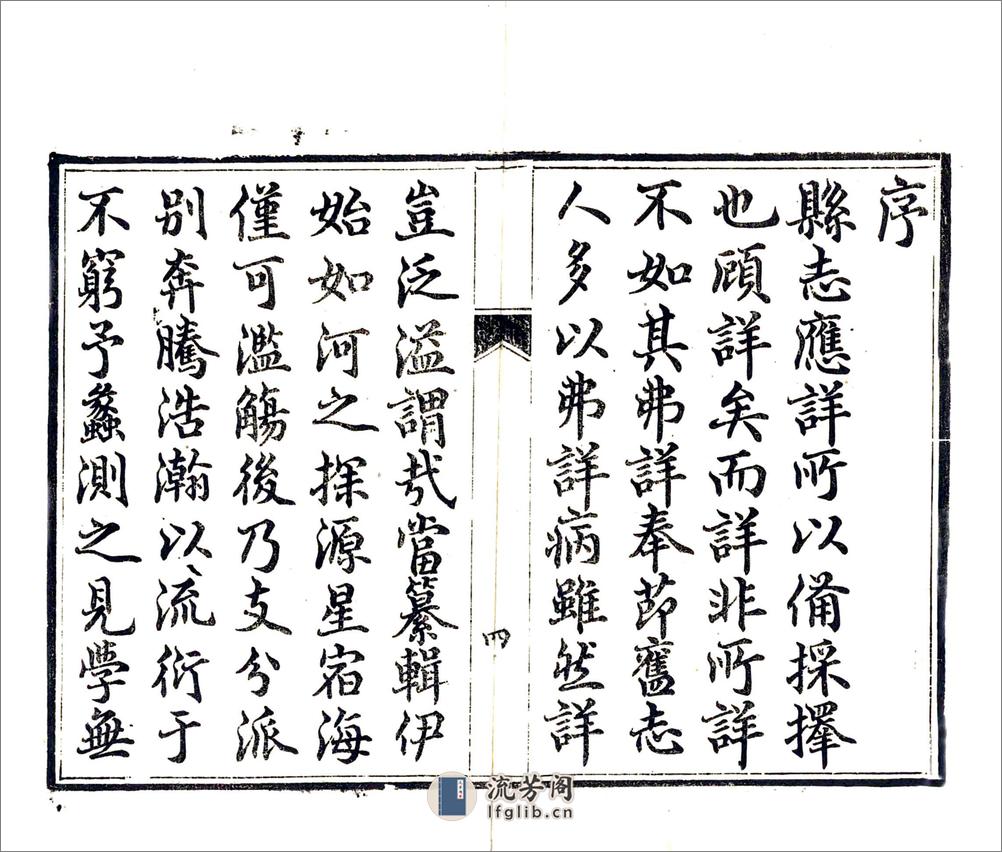 序
縣志應詳所以備採擇
也顧詳矣而詳非所詳
不如其弗詳奉節舊志
人多以弗詳病雖然詳
四
豈泛溢謂哉當纂輯伊
始如河之探源星宿海
僅可濫觴後乃支分派
別奔騰浩瀚以流衍于
不窮予蠡測之見學無
流芳阁
lfglib.cn